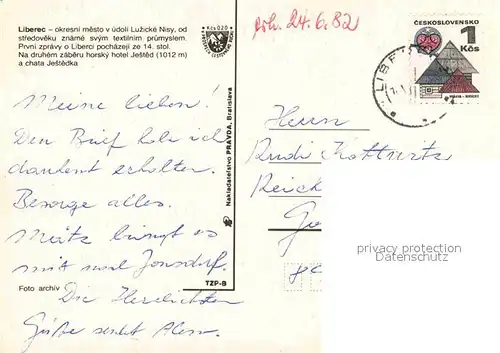 Liberec – okresní město v údolí Lužické Nisy, od
středověku známé svým textilním průmyslem.
První zprávy o Liberci pocházejí ze 14. stol.
Na druhém záběru horský hotel Ještěd (1012 m)
a chata Ještědka
Kčs 0,20
erh. 24.6.82
ČESKOSLOVENSKO
1
Kčs
LIBE
Meine lieben!
Den Brief habe ich
dankent erhalten.
Besorge alles.
bringt es
mit nach Jonsdorf.
Die Herzlichsten
Grüße sendet
Foto archív
TZP-B
Nakladatelstvo PRAVDA, Bratislava
Herrn
Rudi
Reick
privacy protection
Datenschutz